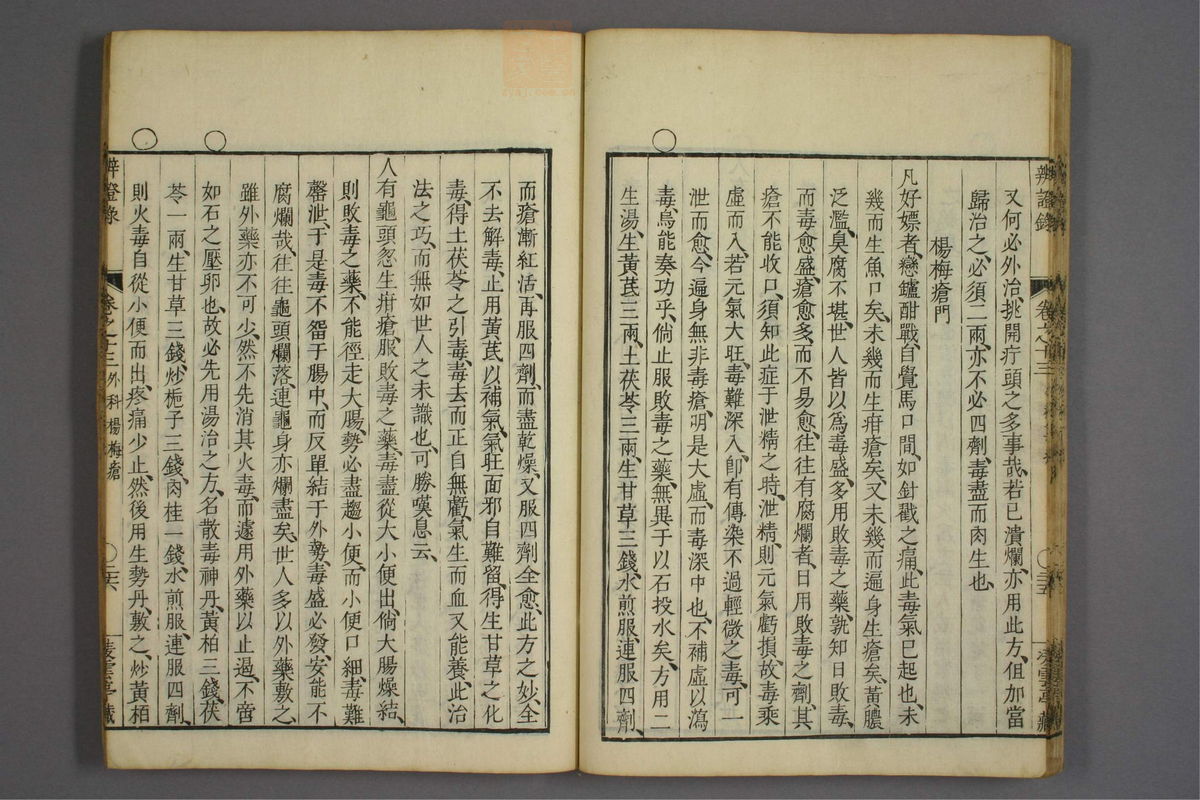 辨證錄
卷之十三
又何必外治挑開疔頭之多事哉若已潰爛亦用此方但加當
歸治之必須二兩亦不必四劑毒盡而肉生也
楊梅瘡門
凡好嫖者戀鑪酣戰自覺馬口間如針戳之痛此毒氣已起也未
幾而生魚口矣未幾而生疳瘡矣又未幾而遍身生瘡矣黃膿
泛濫臭腐不堪世人皆以為毒盛多用敗毒之藥孰知日敗毒
而毒愈盛瘡愈多而不易愈往往有腐爛者日用敗毒之劑其
瘡不能收口須知此症于泄精之時泄精則元氣虧損故毒乘
虛而入若元氣大旺毒難深入卽有傳染不過輕微之毒可一
泄而愈今遍身無非毒瘡明是大虛而毒深中也不補虛以瀉
毒烏能奏功乎倘止服敗毒之藥無異于以石投水矣方用二
生湯生黃芪三兩土茯苓三兩生甘草三錢水煎服連服四劑
而瘡漸紅活再服四劑而盡乾燥又服四劑全愈此方之妙全
不去解毒止用黃芪以補氣氣旺面邪自難留得生甘草之化
毒得土茯苓之引毒毒去而正自無虧氣生而血又能養此治
法之巧而無如世人之未識也可勝嘆息云
人有龜頭忽生疳瘡服敗毒之藥毒盡從大小便出倘大腸燥結
則敗毒之藥不能徑走大腸勢必盡趨小便而小便口細毒難
罄泄于是毒不畱于腸中而反單結于外勢毒盛必發安能不
腐爛哉往往龜頭爛落連龜身亦爛盡矣世人多以外藥敷之
雖外藥亦不可少然不先消其火毒而遽用外藥以止過不啻
如石之壓卵也故必先用湯治之方名散毒神丹黃柏三錢茯
苓一兩生甘草三錢炒梔子三錢肉桂一錢水煎服連服四劑
則火毒自從小便而出疼痛少止然後用生勢丹敷之炒黃柏
辨證錄
卷之十三 外科楊梅瘡